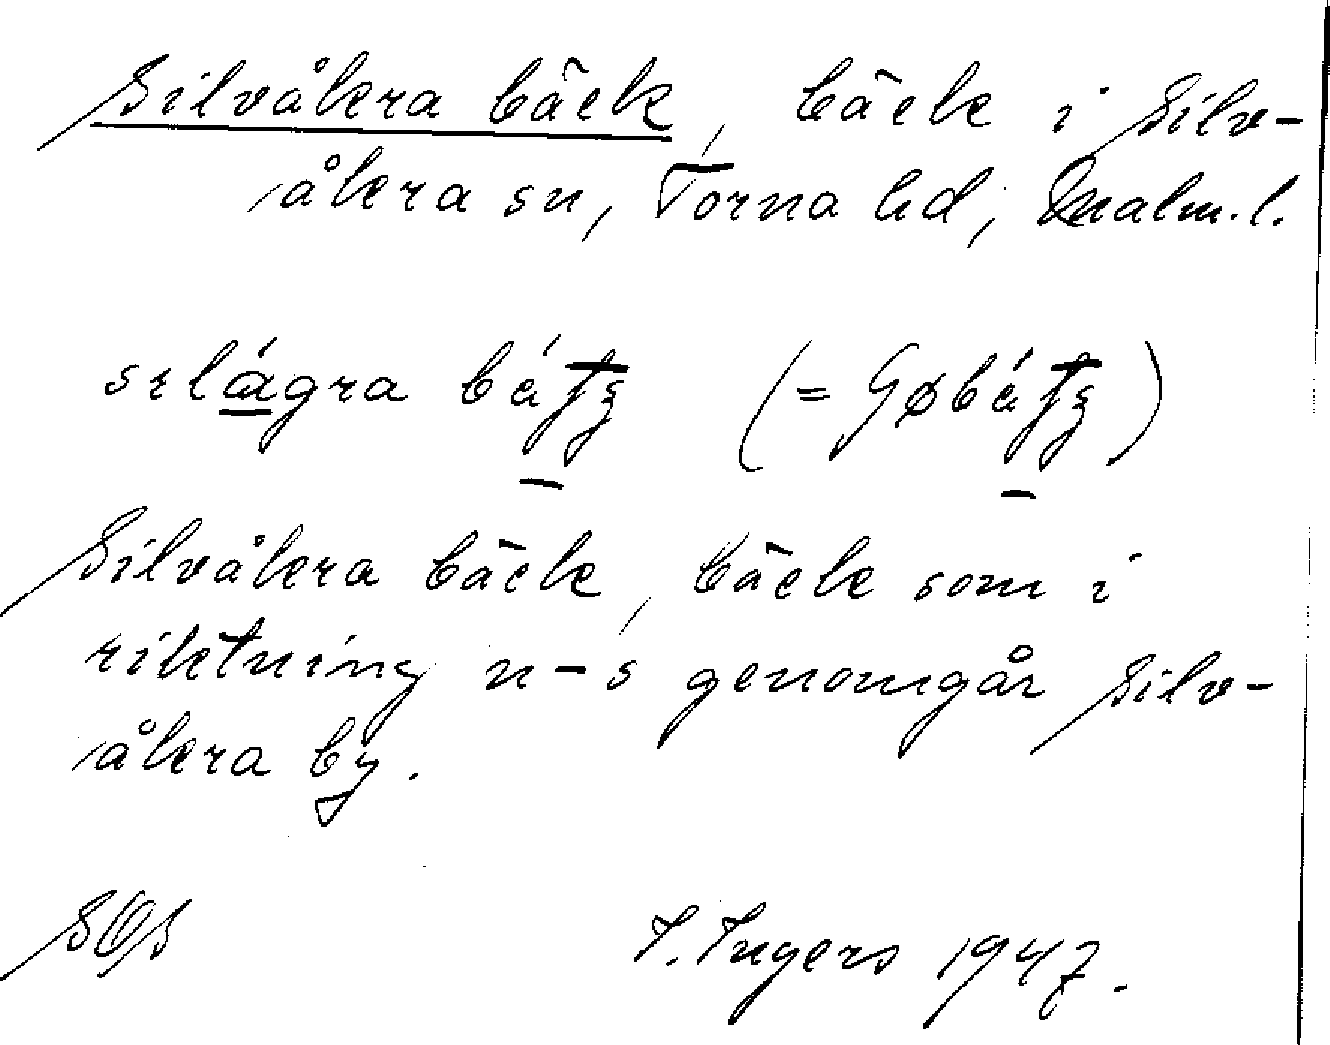 Silvåkra bäck, bäck i Silv-
åkra sn, Torna hd, Malm. l.
Silvåkra bäck, bäck som i
riktning n-s genomgår Silv-
åkra by.
I. Ingers 1947.